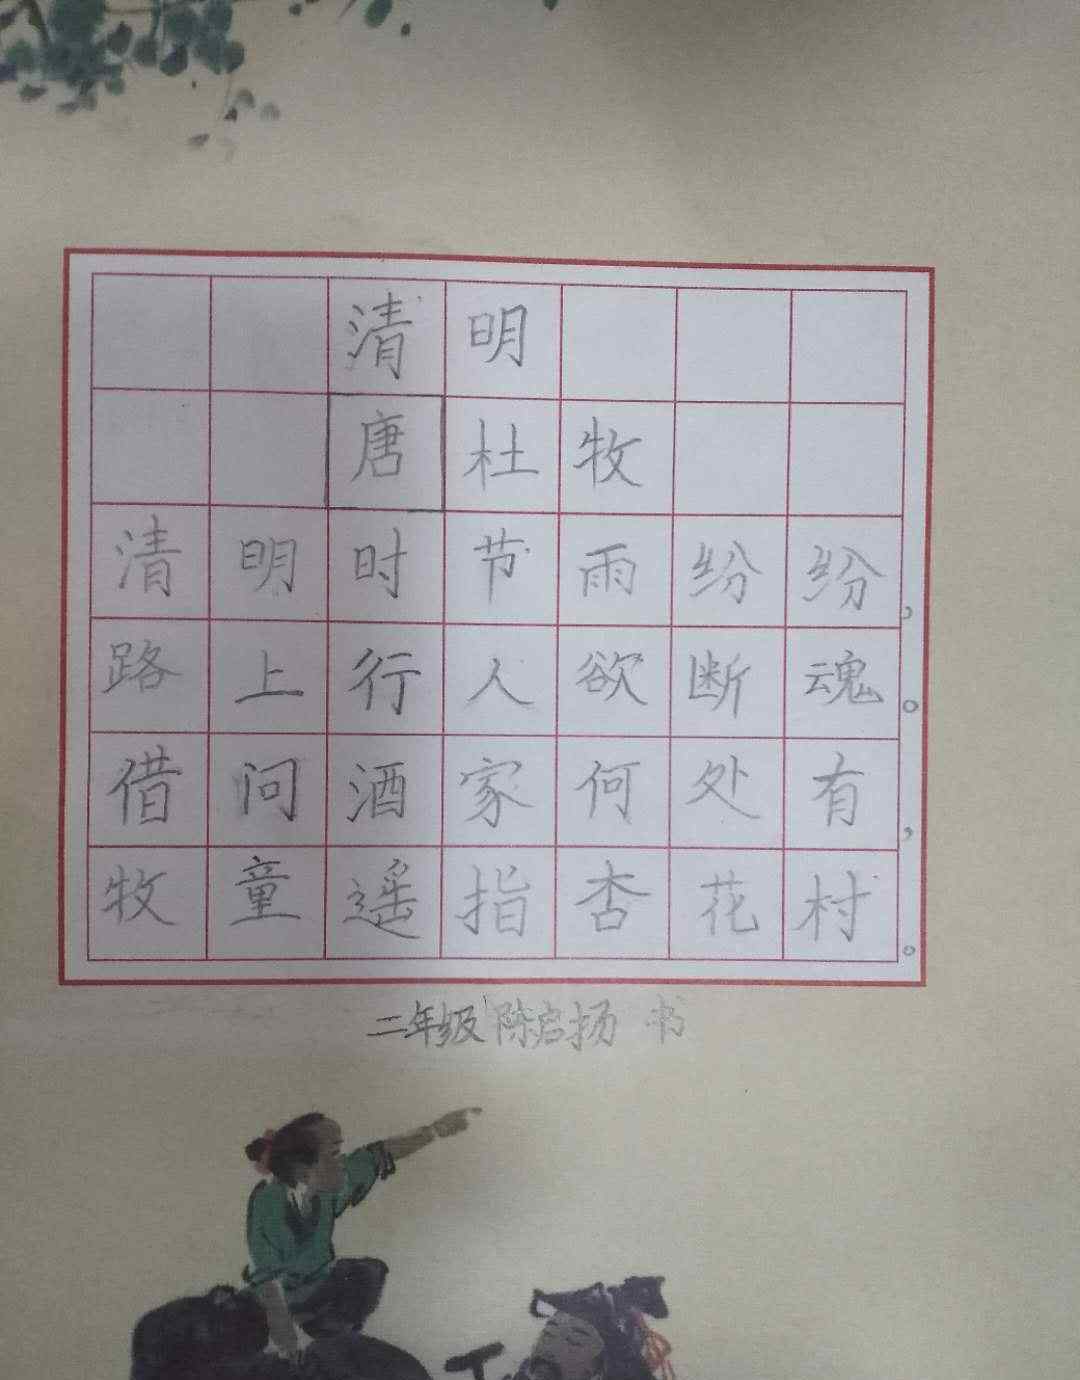 清明
唐杜牧
清明时节雨纷纷，
路上行人欲断魂。
借问酒家何处有，
牧童遥指杏花村。
二年级 陈启扬 书